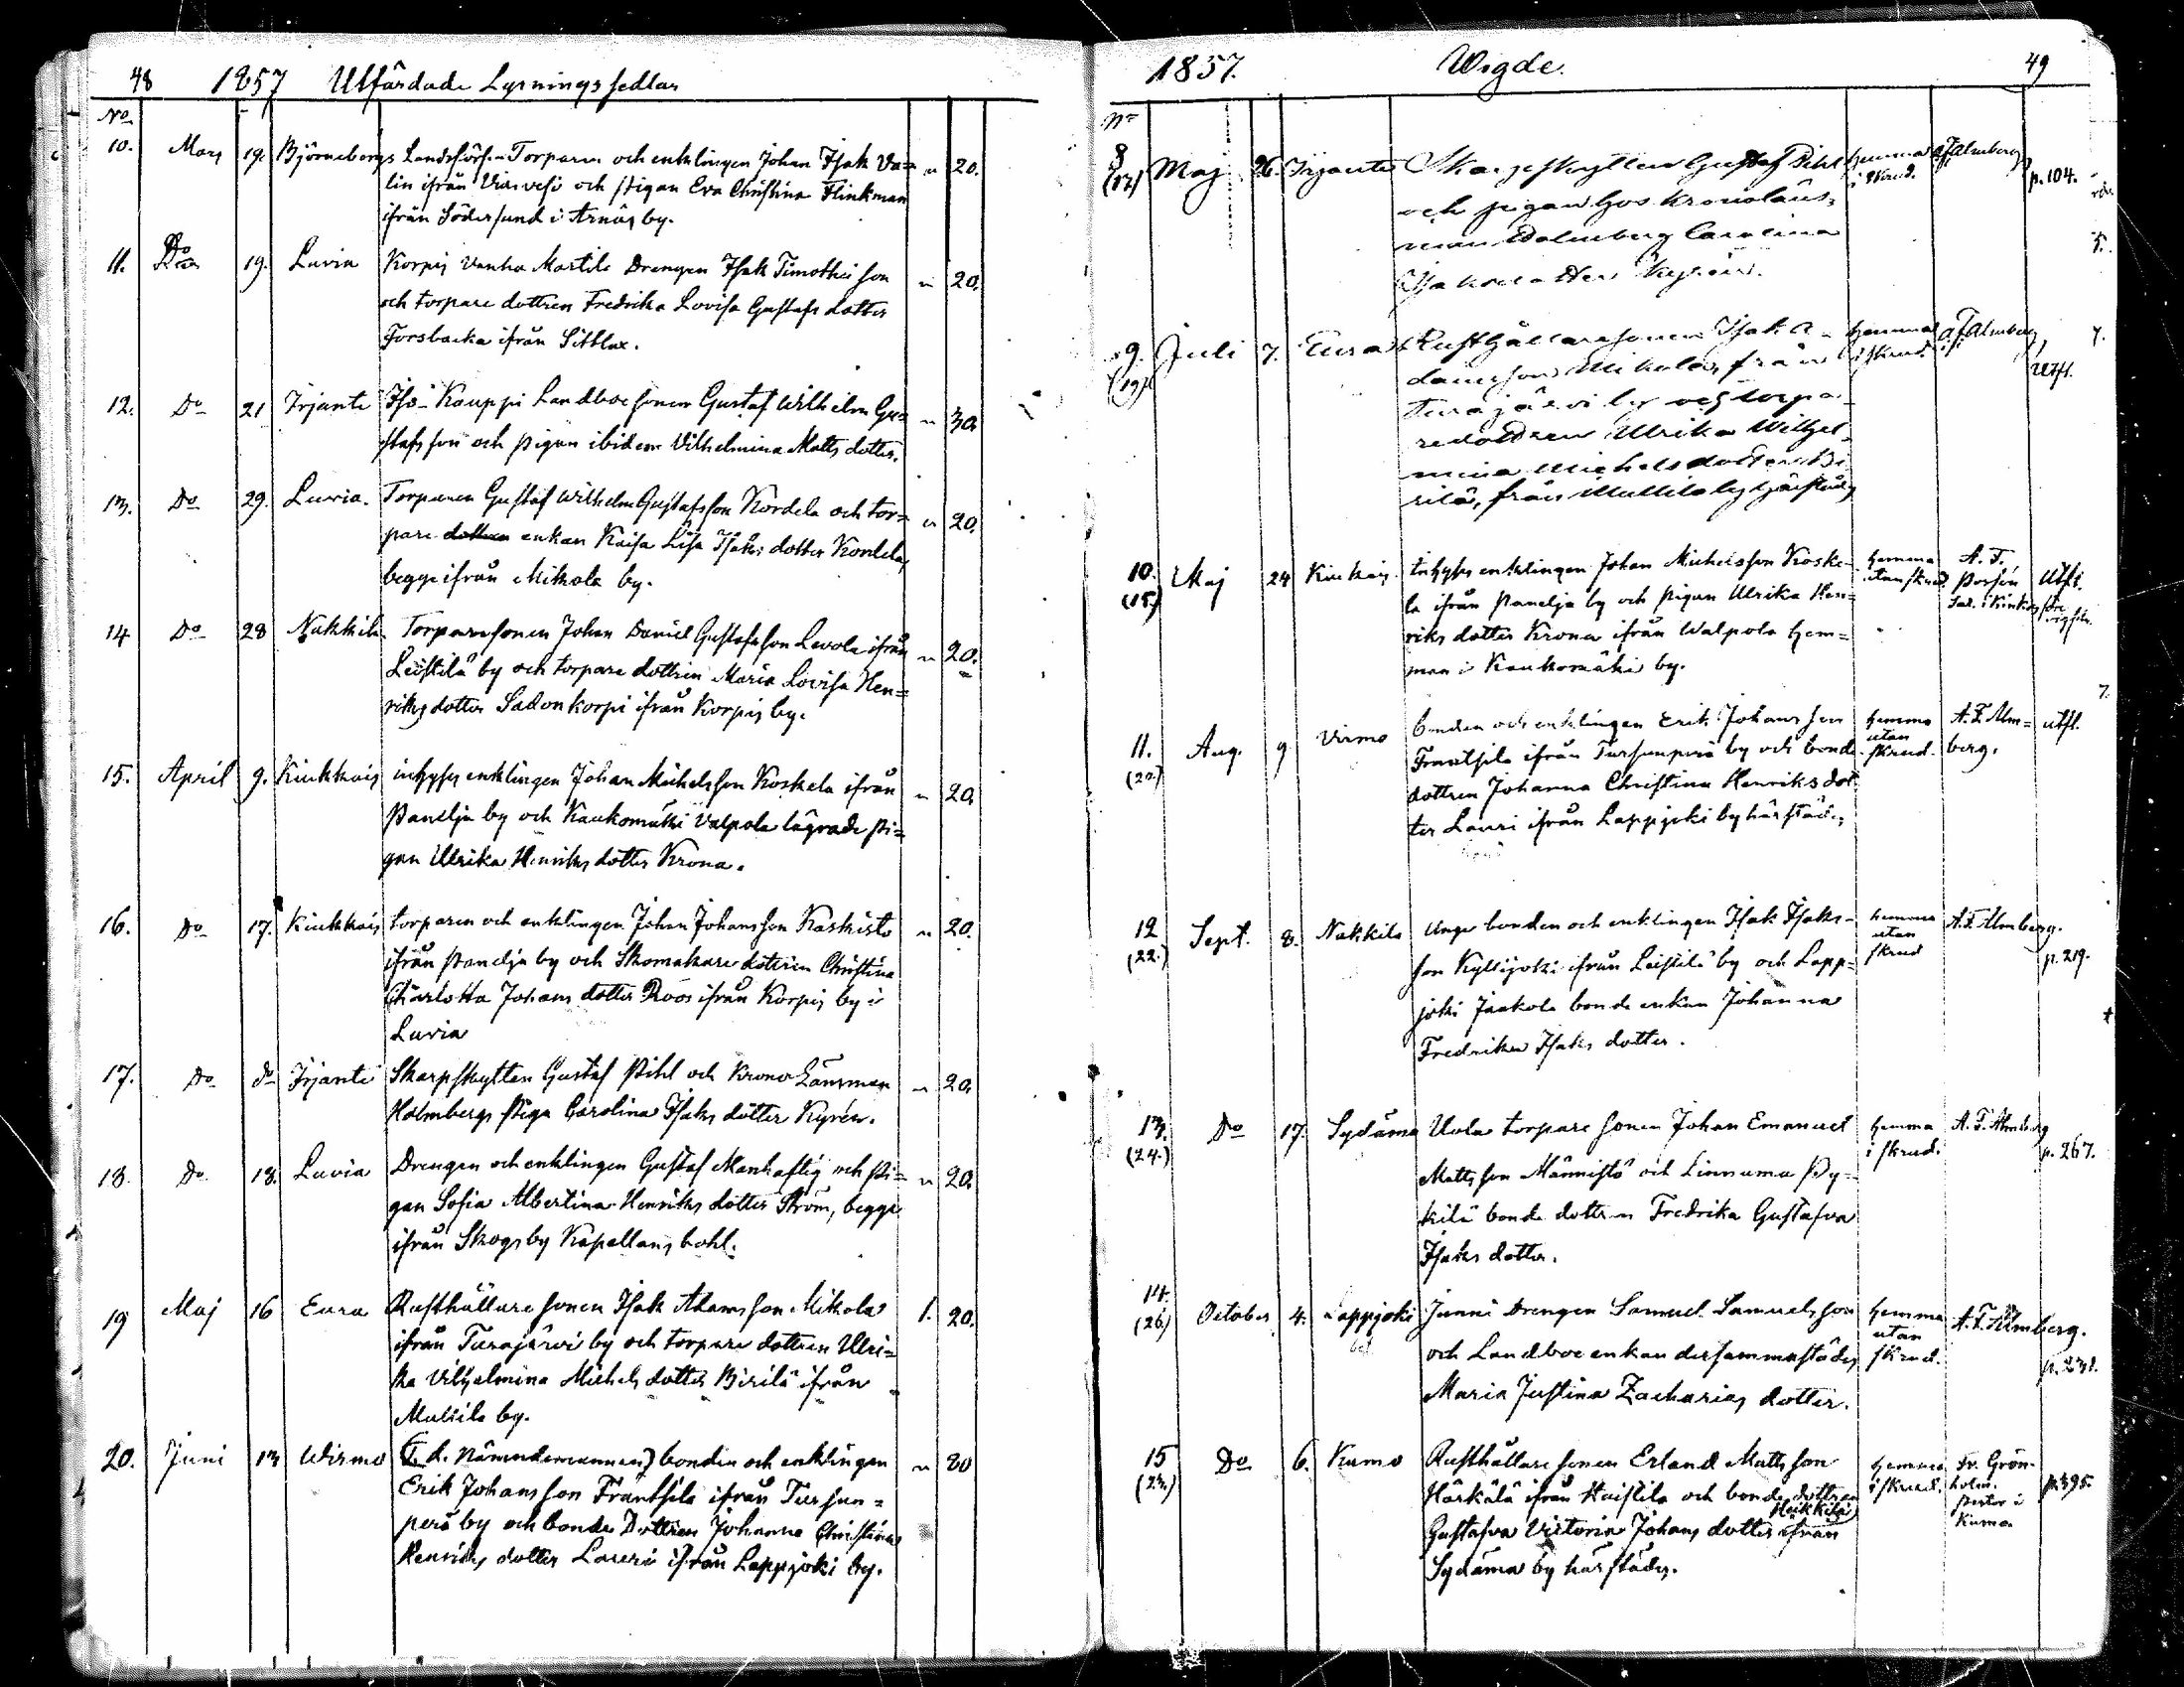 48 1857 Utfärdade Lysningssedlar
No
10. Mars 19. Björneborgs Landsförs. Torparen och enklingen Johan Isak Va= " 20.
lin ifrån Viasvesi och pigan Eva Christina Flinkman
ifrån Södersund i Arnäs by.
11. Do 19. Luvia Korpis Vanha Martila Drengen Isak Timothei son " 20.
och torpare dottren Fredrika Lovisa Gustafs dotter
Forsbacka ifrån
12. Do 21 Irjanti Iso-Kauppi Landboe sonen Gustaf Wilhelm Gu= " 30.
stafsson och pigan ibidem Vilhelmina Matts dotter.
13. Do 29. Luvia. Torparen Gustaf Wilhelm Gustafsson Kordela och tor= " 20.
pare dottren enkan Kaisa Lisa Isaks dotter Kordela,
begge ifrån Mikola by.
14 Do 28 Nakkila Torparesonen Johan Daniel Gustafsson Levola ifrån " 20.
Leistilä by och torpare dottren Maria Lovisa Hen=
riks dotter Sadonkorpi ifrån Korpis by.
15. April 9. Kiukkais inhyses enklingen Johan Michelsson Koskela ifrån " 20.
Panelja by och Kaukomäki Valpola lägrade pi=
gan Ulrika Henriks dotter Krona.
16. Do 17. Kiukkais torparen och enklingen Johan Johansson Kaskisto " 20.
ifrån Panelja by och Skomakare dottren Christina
Charlotta Johans dotter Roos ifrån Korpis by i
Luvia
17. Do do Irjanti Skarpskytten Gustaf Pihl och Krono Länsman " 20.
Holmbergs Piga Carolina Isaks dotter Kyrén.
18. Do 18. Luvia Drengen och enklingen Gustaf Manhaftig och pi= " 20.
gan Sofia Albertina Henriks dotter Ström, begge
ifrån Skogsby Kapellans bohl.
19 Maj 16 Eura Rusthållare sonen Isak Adamsson Mikola 1. 20.
ifrån Turajärvi by och torpare dottren Ulri=
ka Vilhelmina Michels dotter Birilä ifrån
Mullila by.
20. Juni 13 Wirmo (f. d. Nämndemannen) bonden och enklingen " 20
Erik Johansson Frantsila ifrån Tursun=
perä by och bonde Dottren Johanna Christina
Henriks dotter Lauri ifrån Lappjoki by.
1857. Wigde. 49
No
8 (17) Maj 26. Irjanti Skarpskytten Gustaf Pihl hemma i skrud. A. F. Almberg p. 104.
och pigan hos kronoläns=
man Holmberg Carolina
Isaksdotter Kyrén.
9. (19) Juli 7. Eura Rusthållaresonen Isak A= hemma i skrud. A. F. Almberg, utfl.
damsson Mikola, från
Turajärvi by och torpa=
redottren Ulrika Wilhel=
mina Michelsdotter Bi=
rilä, från Mullila by härstädes
10. (15.) Maj 24 Kiukais. Inhyses enklingen Johan Michelsson Koske= hemma utan skrud. A. F. Utfl.
la ifrån Panelja by och pigan Ulrika Hen=
riks dotter Krona ifrån Walpola hem=
man i Kaukomäki by.
11. (20.) Aug. 9 Virmo bonden och enklingen Erik Johansson hemma utan skrud. A. F. Alm= berg. utfl.
Frantsila ifrån Tursunperä by och bonde
dottren Johanna Christina Henriks dot
ter Lauri ifrån Lappjoki by härstädes
12 (22.) Sept. 8. Nakkila Unge bonden och enklingen Isak Isaks= hemma utan skrud A. F. Almberg. p. 219.
son Kyllijoki ifrån Leistilä by och Lapp=
joki Jaakola bonde enkan Johanna
Fredrika Isaks dotter.
13. (24.) Do 17. Sydänma Uola torpare sonen Johan Emanuel hemma i skrud. A. F. Almberg p. 267.
Mattsson Männistö och Linnama Py=
kilä bonde dottren Fredrika Gustafva
Isaks dotter.
14. (26) October 4. Lappjoki Junni Drengen Samuel Samuelsson hemma utan skrud. A. F. Almberg. p. 231.
och Landboe enkan dersammastädes
Maria Justina Zacharias dotter.
15 (23.) Do 6. Kumo Rusthållare sonen Erland Mattsson hemma i skrud. Fr. Grön= holm. Pastor i Kumo p. 395.
Härkälä ifrån Haistila och bonde dottren
Heikkilä
Gustafva Victoria Johans dotter ifrån
Sydänma by härstädes.